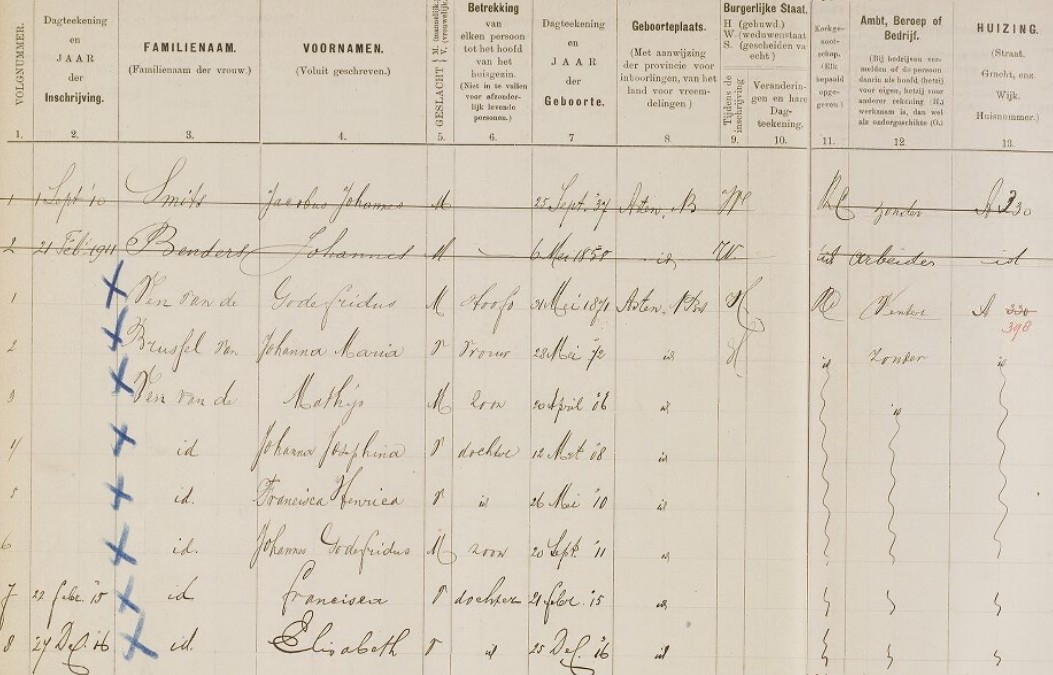 VOLGNUMMER.
Dagteekening
en
JAAR
der
Inschrijving.
FAMILIENAAM.
(Familienaam der vrouw.)
VOORNAMEN.
(Voluit geschreven.)
GESLACHT { M. (mannelijk.) V. (vrouwelijk.)
Betrekking
van
elken persoon
tot het hoofd
van het
huisgezin.
(Niet in te vullen
voor afzonder-
lijk levende
personen.)
Dagteekening
en
JAAR
der
Geboorte.
Geboorteplaats.
(Met aanwijzing
der provincie voor
inboorlingen, van het
land voor vreem-
delingen )
Burgerlijke Staat.
H (gehuwd.)
W. (weduwenstaat
S. (gescheiden va
echt )
Tijdens de
inschrijving
Veranderin-
gen en hare
Dag-
teekening.
Kerkge-
noot-
schap.
(Elk
bepaald
opge-
geven)
Ambt, Beroep of
Bedrijf.
(Bij bedrijven ver-
melden of de persoon
daarin als hoofd (hetzij
voor eigen, hetzij voor
anderer rekening (H.)
werkzaam is, dan wel
als ondergeschikte (O.)
HUIZING.
(Straat.
Gracht, enz.
Wijk.
Huisnummer.)
1. 2. 3. 4. 5. 6. 7 8. 9. 10. 11. 12. 13.
1 1 Sept '10 Smits Jacobus Johannes M 25 Sept. '37 Asten, NB W RC zonder A 330
2 21 Feb. 1911 Benders Johannes M — 6 Mei 1850 id W. id arbeider id
1 Ven van de Godefridus M Hoofd Mei 1871 Asten, NBr H RC Venter A 330
398
2 Brussel van Johanna Maria V Vrouw 28 Mei '72 id H id zonder id
3 Ven van de Mathijs M Zoon 20 April '06 id id
4 id Johanna Josephina V dochter 12 Mrt '08 id
5 id. Francisca Henrica V id 26 Mei '10 id
6 id. Johannes Godefridus M zoon 20 Sept. '11 id
7 22 febr. '15 id francisca V dochter 21 febr. '15 id
8 27 Dec. '16 id. Elisabeth V id 25 Dec. '16 id